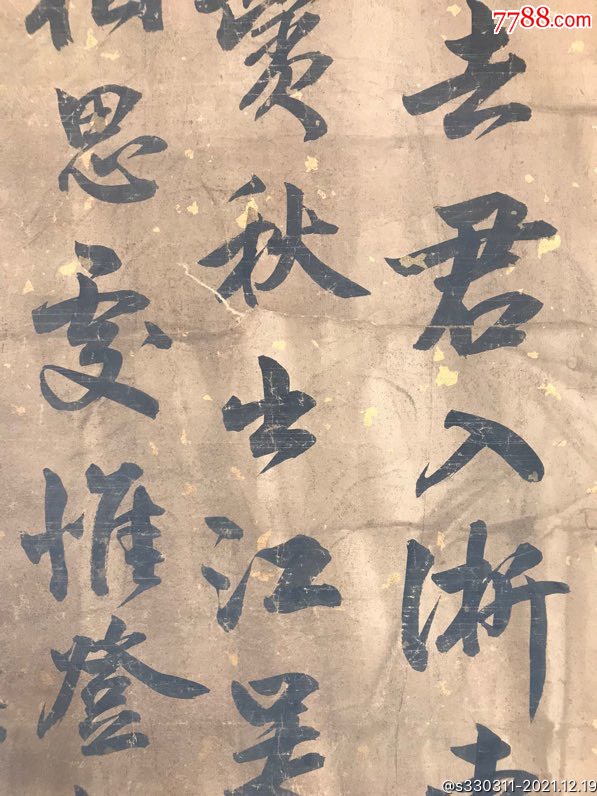 7788.com
去君入浙
秋出江
相思處惟登
@s330311-2021.12.19